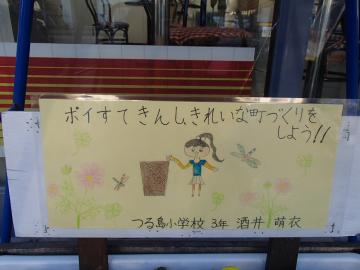 ポイすてきんしきれいな町づくりを
しよう!!
つる島小学校 3年 酒井 萌衣